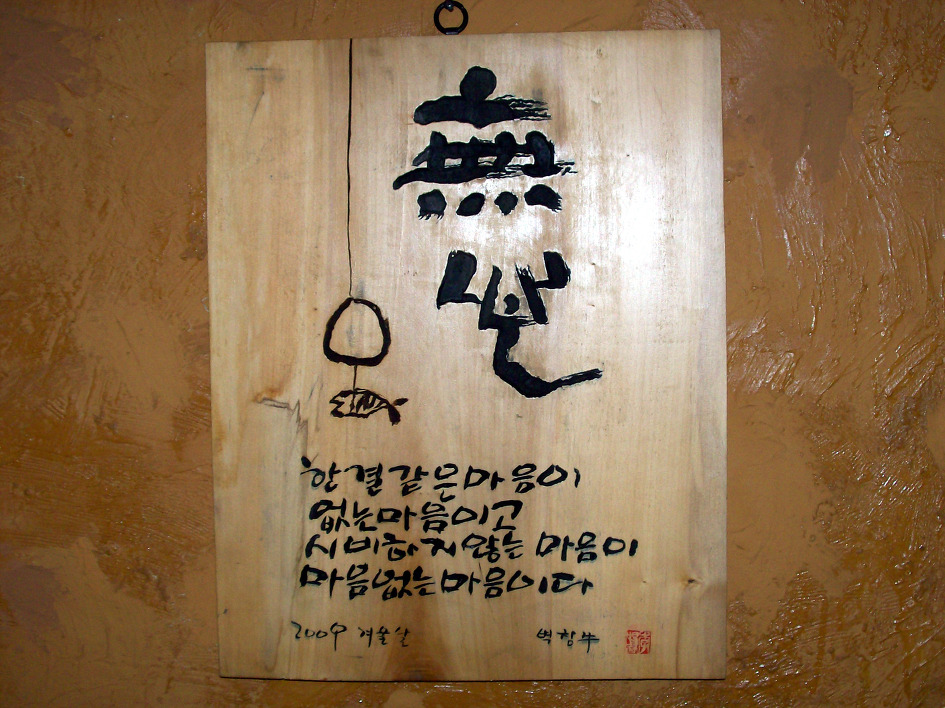 無
心
한결같은마음이
없는마음이고
시비하지않는 마음이
마음없는마음이다
2009 벽창牛